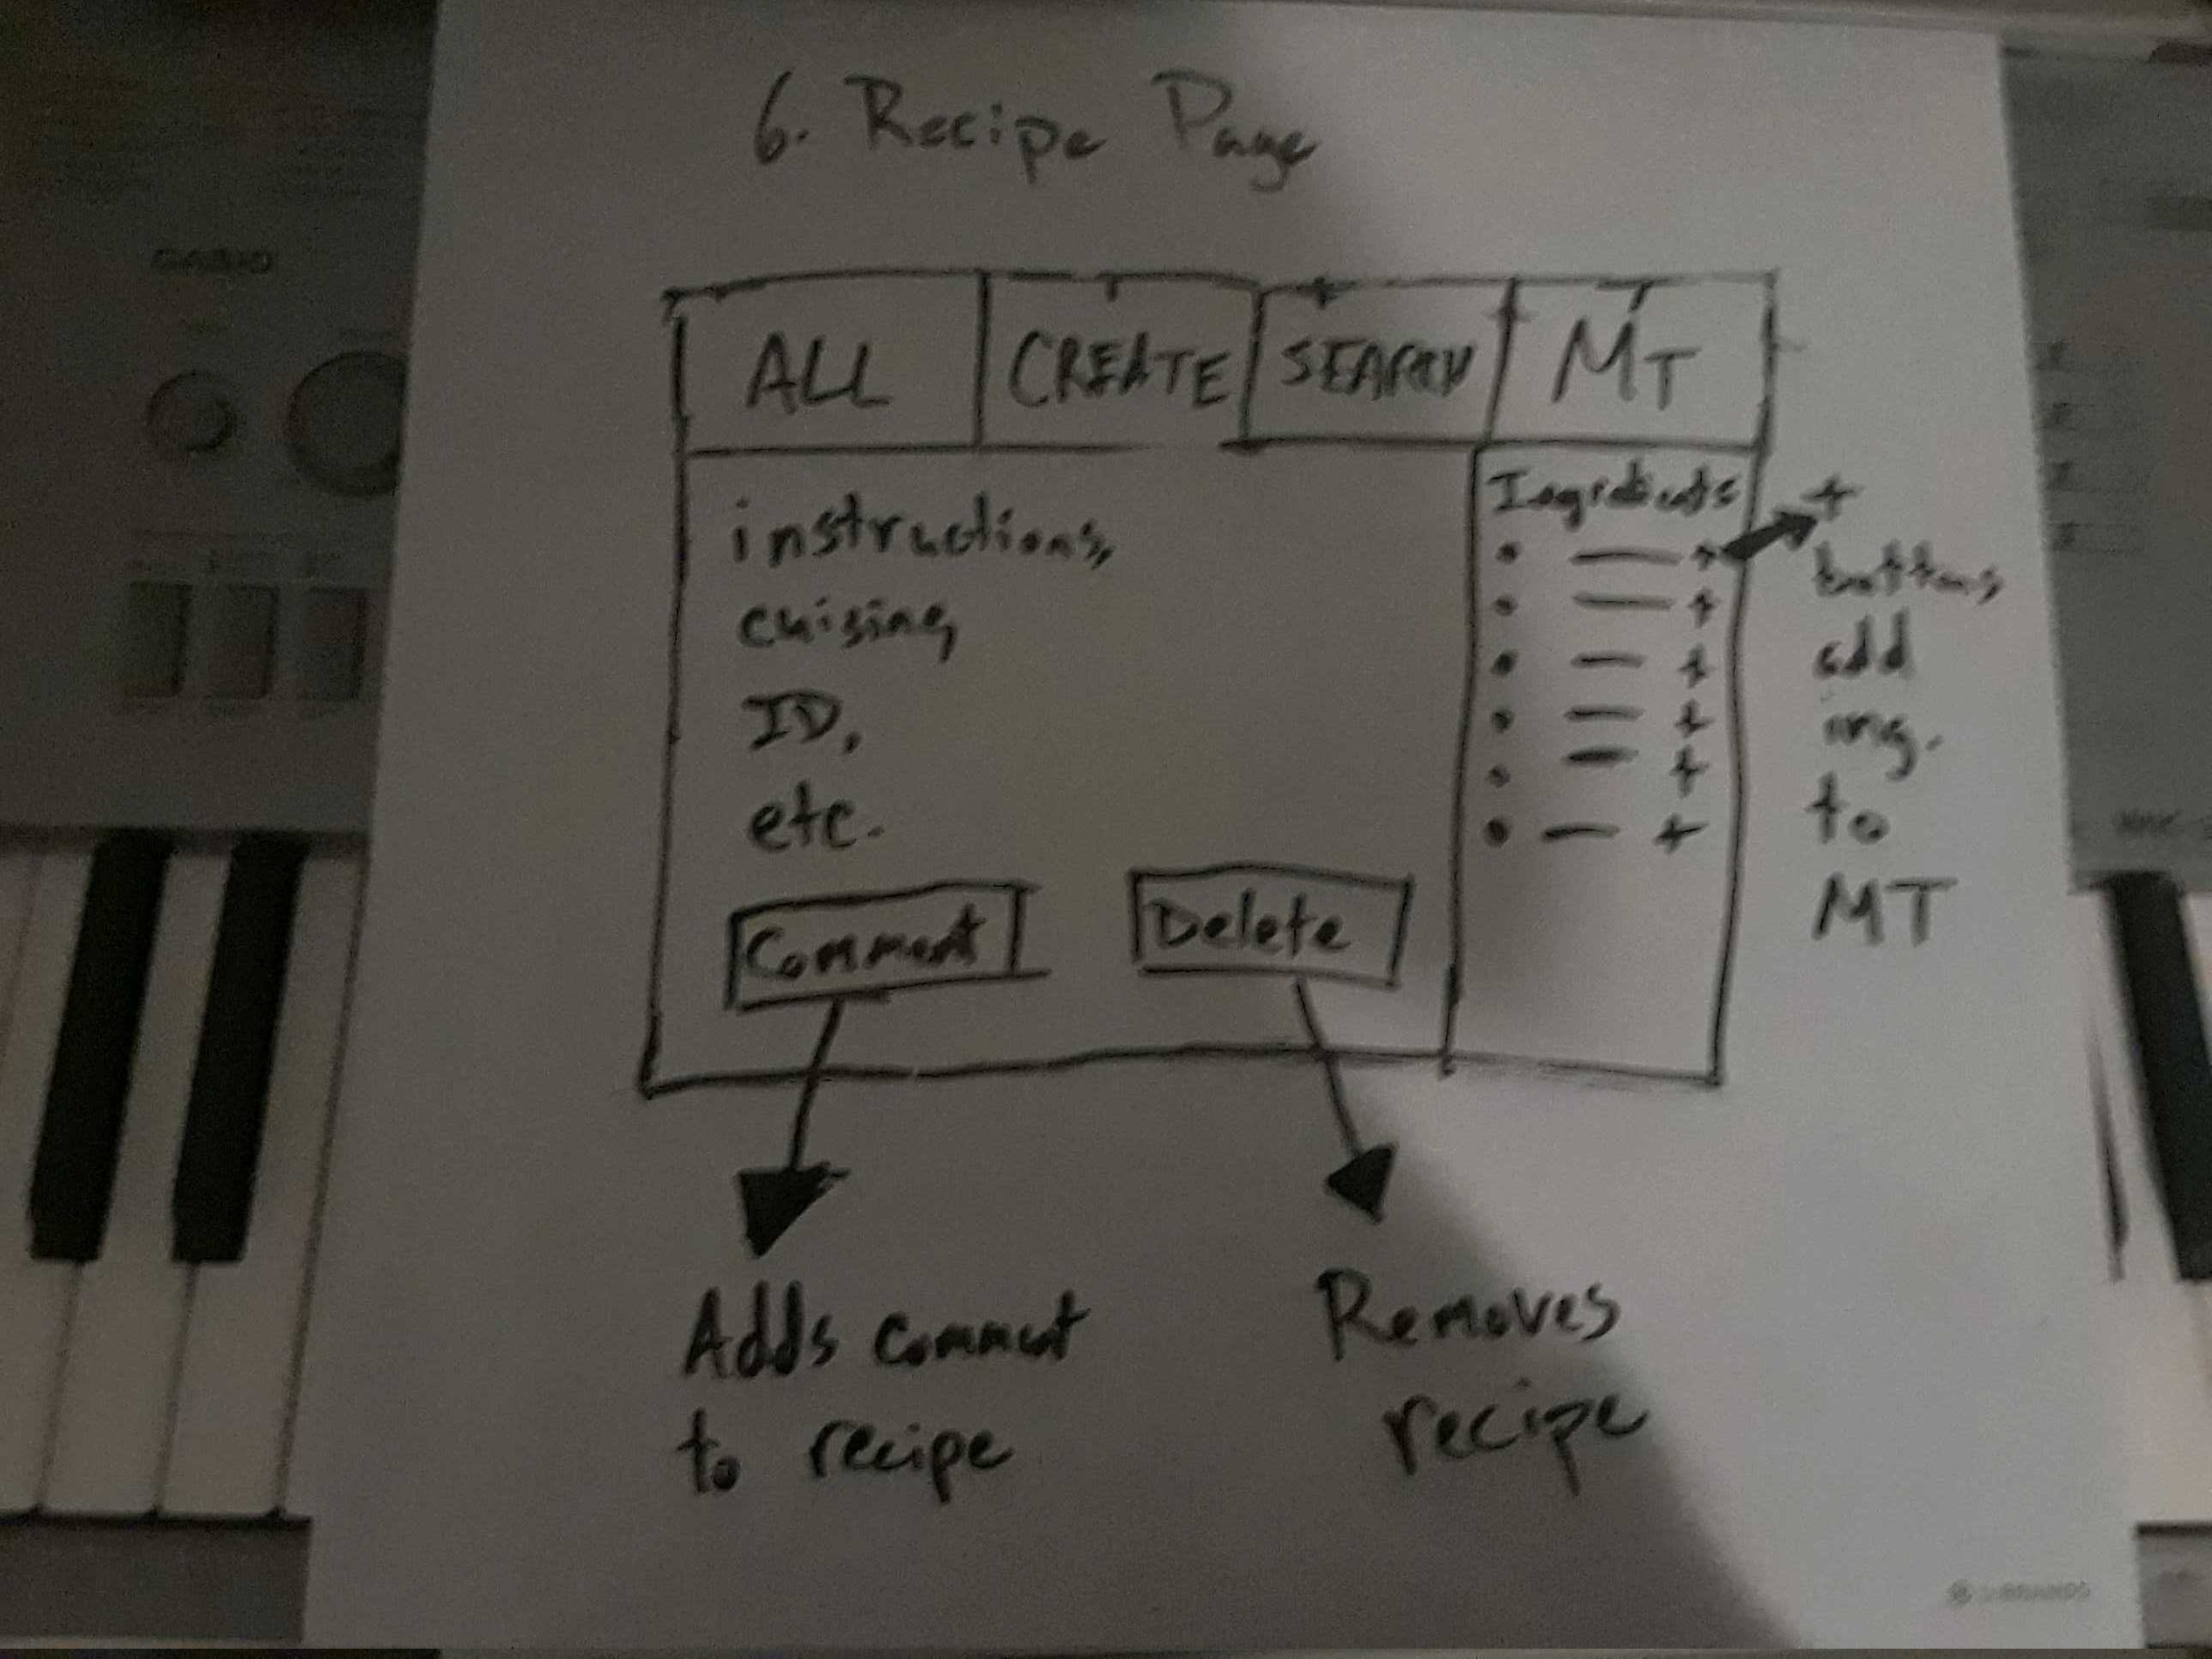 6. Recipe Page
ALL CREATE SEARCH MT
instructions,
cuisine,
ID,
etc.
Comment Delete
Ingredients
+
buttons
add
ing.
to
MT
Adds comment
to recipe
Removes
recipe
CASIO